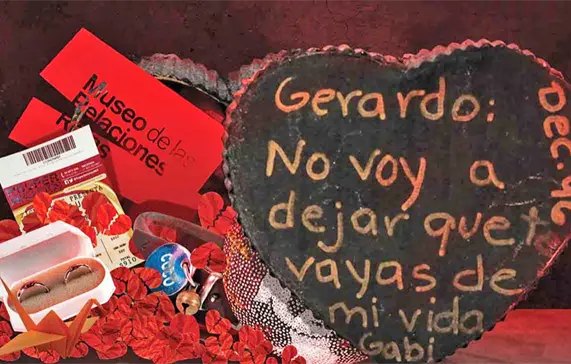 Museo de las
Relaciones
Gerardo:
No voy a
dejar que te
vayas de
mi vida
Gabi
Dec. 96